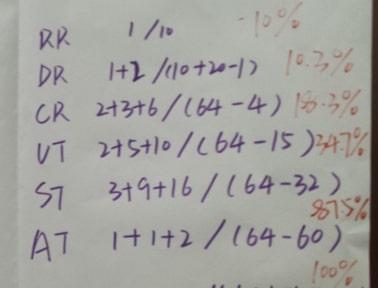 RR 1/10 -10%
DR 1+2/(10+20-1) 10.3%
CR 2+3+6/(64-4) 18.3%
VT 2+5+10/(64-15) 34.7%
ST 3+9+16/(64-32) 87.5%
AT 1+1+2/(64-60) 100%